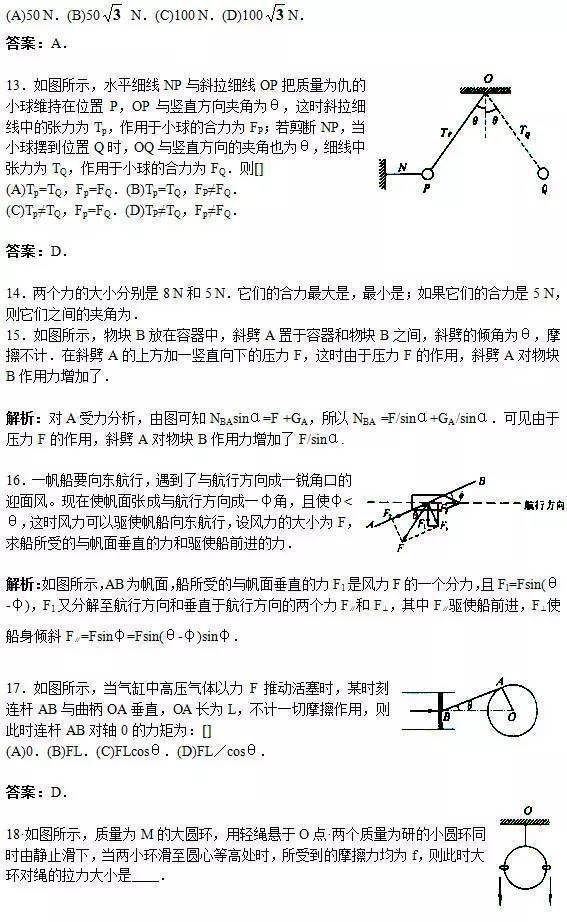 (A)50 N．(B)50√3 N．(C)100 N．(D)100√3 N．
答案：A．
13．如图所示，水平细线 NP 与斜拉细线 OP 把质量为仇的
小球维持在位置 P，OP 与竖直方向夹角为θ，这时斜拉细
线中的张力为 Tp，作用于小球的合力为 FP；若剪断 NP，当
小球摆到位置 Q 时，OQ 与竖直方向的夹角也为θ，细线中
张力为 TQ，作用于小球的合力为 FQ．则[]
(A)Tp=TQ，Fp=FQ．(B)Tp=TQ，FP≠FQ．
(C)Tp≠TQ，Fp=FQ．(D)TP≠TQ，Fp≠FQ．
O
θ θ
TP TQ
N
P Q
答案：D．
14．两个力的大小分别是 8 N 和 5 N．它们的合力最大是，最小是；如果它们的合力是 5 N，
则它们之间的夹角为．
15．如图所示，物块 B 放在容器中，斜劈 A 置于容器和物块 B 之间，斜劈的倾角为θ，摩
擦不计．在斜劈 A 的上方加一竖直向下的压力 F，这时由于压力 F 的作用，斜劈 A 对物块
B 作用力增加了．
解析：对 A 受力分析，由图可知 NBAsinα=F +GA，所以 NBA =F/sinα+GA/sinα．可见由于
压力 F 的作用，斜劈 A 对物块 B 作用力增加了 F/sinα．
16．一帆船要向东航行，遇到了与航行方向成一锐角口的
迎面风。现在使帆面张成与航行方向成一φ角，且使φ<
θ，这时风力可以驱使帆船向东航行，设风力的大小为 F，
求船所受的与帆面垂直的力和驱使船前进的力．
B
航行方向
A
F
解析:如图所示,AB 为帆面,船所受的与帆面垂直的力 F1 是风力 F 的一个分力,且 F1=Fsin(θ
-φ)，F1 又分解至航行方向和垂直于航行方向的两个力 F∥和 F⊥，其中 F∥驱使船前进，F⊥使
船身倾斜 F∥=Fsinφ=Fsin(θ-φ)sinφ．
17．如图所示，当气缸中高压气体以力 F 推动活塞时，某时刻
连杆 AB 与曲柄 OA 垂直，OA 长为 L，不计一切摩擦作用，则
此时连杆 AB 对轴 0 的力矩为：[]
(A)0．(B)FL．(C)FLcosθ．(D)FL／cosθ．
A
B θ O
答案：D．
18·如图所示，质量为 M 的大圆环，用轻绳悬于 O 点·两个质量为研的小圆环同
时由静止滑下，当两小环滑至圆心等高处时，所受到的摩擦力均为 f，则此时大
环对绳的拉力大小是____．
O